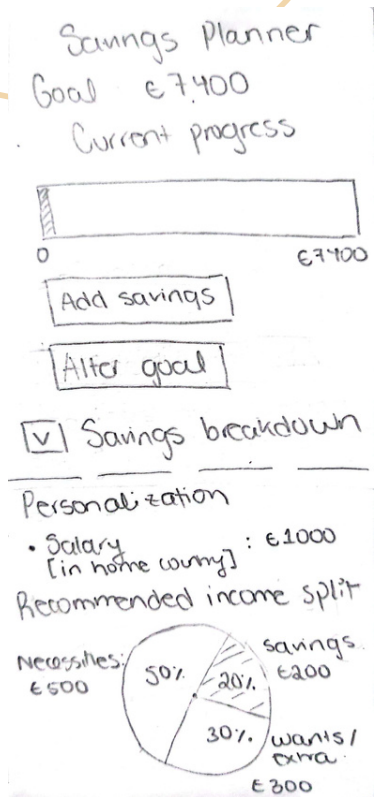 Savings Planner
Goal €7400
Current progress
0 €7400
Add savings
Alter goal
v Savings breakdown
Personalization
• Salary : €1000
[in home country]
Recommended income split
Necessities:
€500
50%
20%
savings
€200
30%
wants/
extra
€300